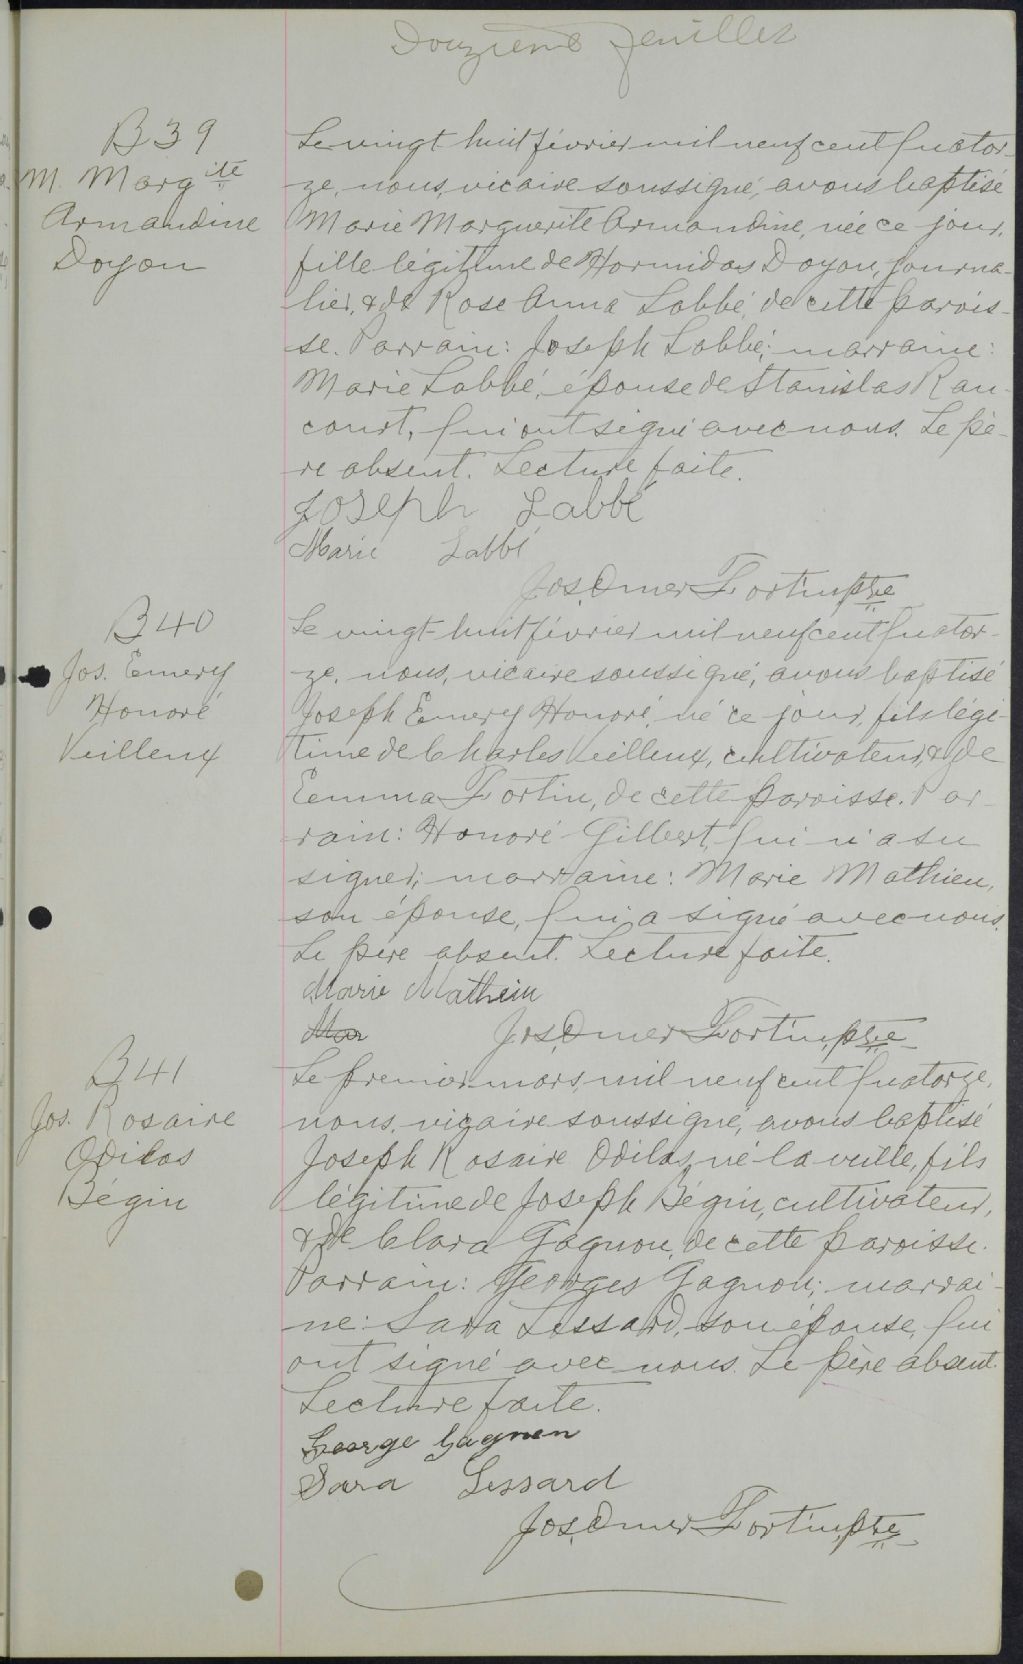 Douzième feuillet
B39
M. Marg ite
Armandine
Doyon
Le vingt huit février mil neuf cent quator-
ze, nous, vicaire soussigné, avons baptisé
Marie Marguerite Armandine, née ce jour,
fille légitime de Hormidas Doyon, journa-
lier, & de Rose Anna Labbé, de cette parois-
se. Parrain: Joseph Labbé; marraine:
Marie Labbé, épouse de Stanislas Ran-
court, qui ont signé avec nous. Le pè-
re absent. Lecture faite.
Joseph Labbé
Marie Labbé
Jos. Omer Fortin, ptre
B40
Jos. Emery
Honoré
Veilleux
Le vingt-huit février mil neuf cent quator-
ze, nous, vicaire soussigné, avons baptisé
Joseph Emery Honoré, né ce jour, fils légi-
time de Charles Veilleux, cultivateur, & de
Emma Fortin, de cette paroisse. Par-
rain: Honoré Gilbert, qui n'a su
signer; marraine: Marie Mathieu,
son épouse, qui a signé avec nous.
Le père absent. Lecture faite.
Marie Mathieu
Mar
Jos. Omer Fortin, ptre
B41
Jos. Rosaire
Odilas
Bégin
Le premier mars, mil neuf cent quatorze,
nous, vicaire soussigné, avons baptisé
Joseph Rosaire Odilas, né la veille, fils
légitime de Joseph Bégin, cultivateur,
& de Clara Gagnon, de cette paroisse.
Parrain: Georges Gagnon; marrai-
ne: Sara Lessard, son épouse, qui
ont signé avec nous. Le père absent.
Lecture faite.
George Gagnon
Sara Lessard
Jos. Omer Fortin, ptre